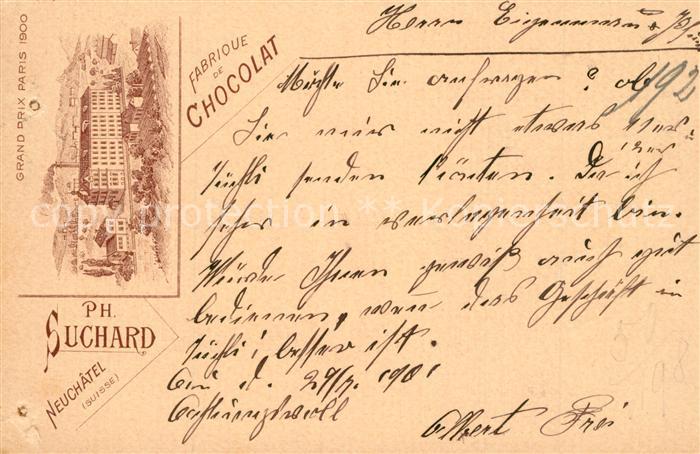 GRAND PRIX PARIS 1900
FABRIQUE
DE
CHOCOLAT
PH.
SUCHARD
NEUCHÂTEL
(SUISSE)
Herrn Eigenmann
Möchte Sie anfragen ? ob
192
Sie mir nicht etwas
senden könten. Da ich
sehr in verlegenheit bin.
Würde Ihnen gewiß auch gut
bedienen, wen das Geschäft in
besser ist.
d. 29/7. 1901
Achtungsvoll
Albert Frei